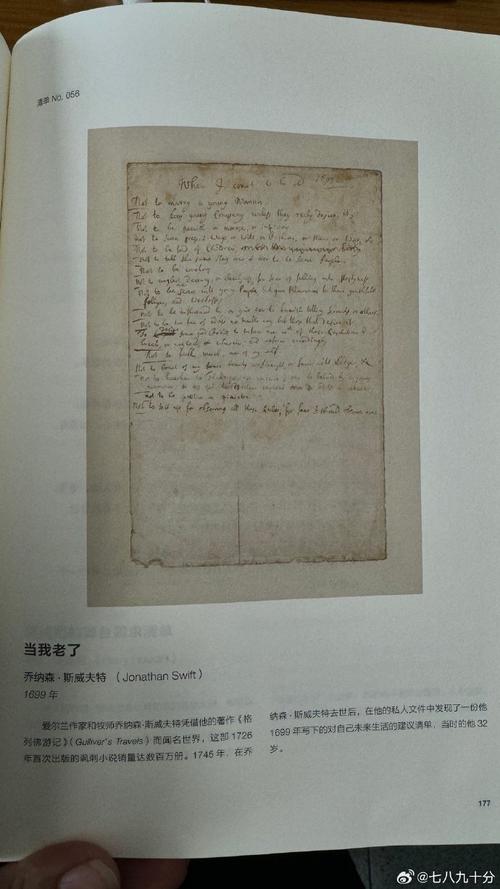 清单 No. 056
When I come to be old 1699
Not to marry a young Woman.
Not to keep young Company unless they really desire it.
Not to be peevish or morose, or suspicious.
Not to scorn present Ways or Wits or Fashions, or Men, or War, &c
Not to be fond of Children,
Not to tell the same Story over & over to the same People.
Not to be covetous.
Not to neglect decency, or cleanlyness, for fear of falling into Nastyness
Not to be over severe with young People, but give Allowances for their youthfull
follyes, and Weaknesses
Not to be influenced by, or give ear to knavish tatling Servants, or others.
Not to be too free of advise nor trouble any but those that desire it.
To desire some good Friends to inform me which of these Resolutions I
break, or neglect, & wherein; and reform accordingly.
Not to talk much, nor of my self.
Not to boast of my former beauty, or strength, or favor with Ladyes, &c.
Not to hearken to Flatteryes, nor
Not to be positive or opiniatre.
Not to sett up for observing all these Rules, for fear I should observe none
当我老了
乔纳森·斯威夫特 (Jonathan Swift)
1699 年
爱尔兰作家和牧师乔纳森·斯威夫特凭借他的著作《格
列佛游记》(Gulliver's Travels) 而闻名世界，这部 1726
年首次出版的讽刺小说销量达数百万册。1745 年，在乔
纳森·斯威夫特去世后，在他的私人文件中发现了一份他
1699 年写下的对自己未来生活的建议清单，当时的他 32
岁。
177
@七八九十分